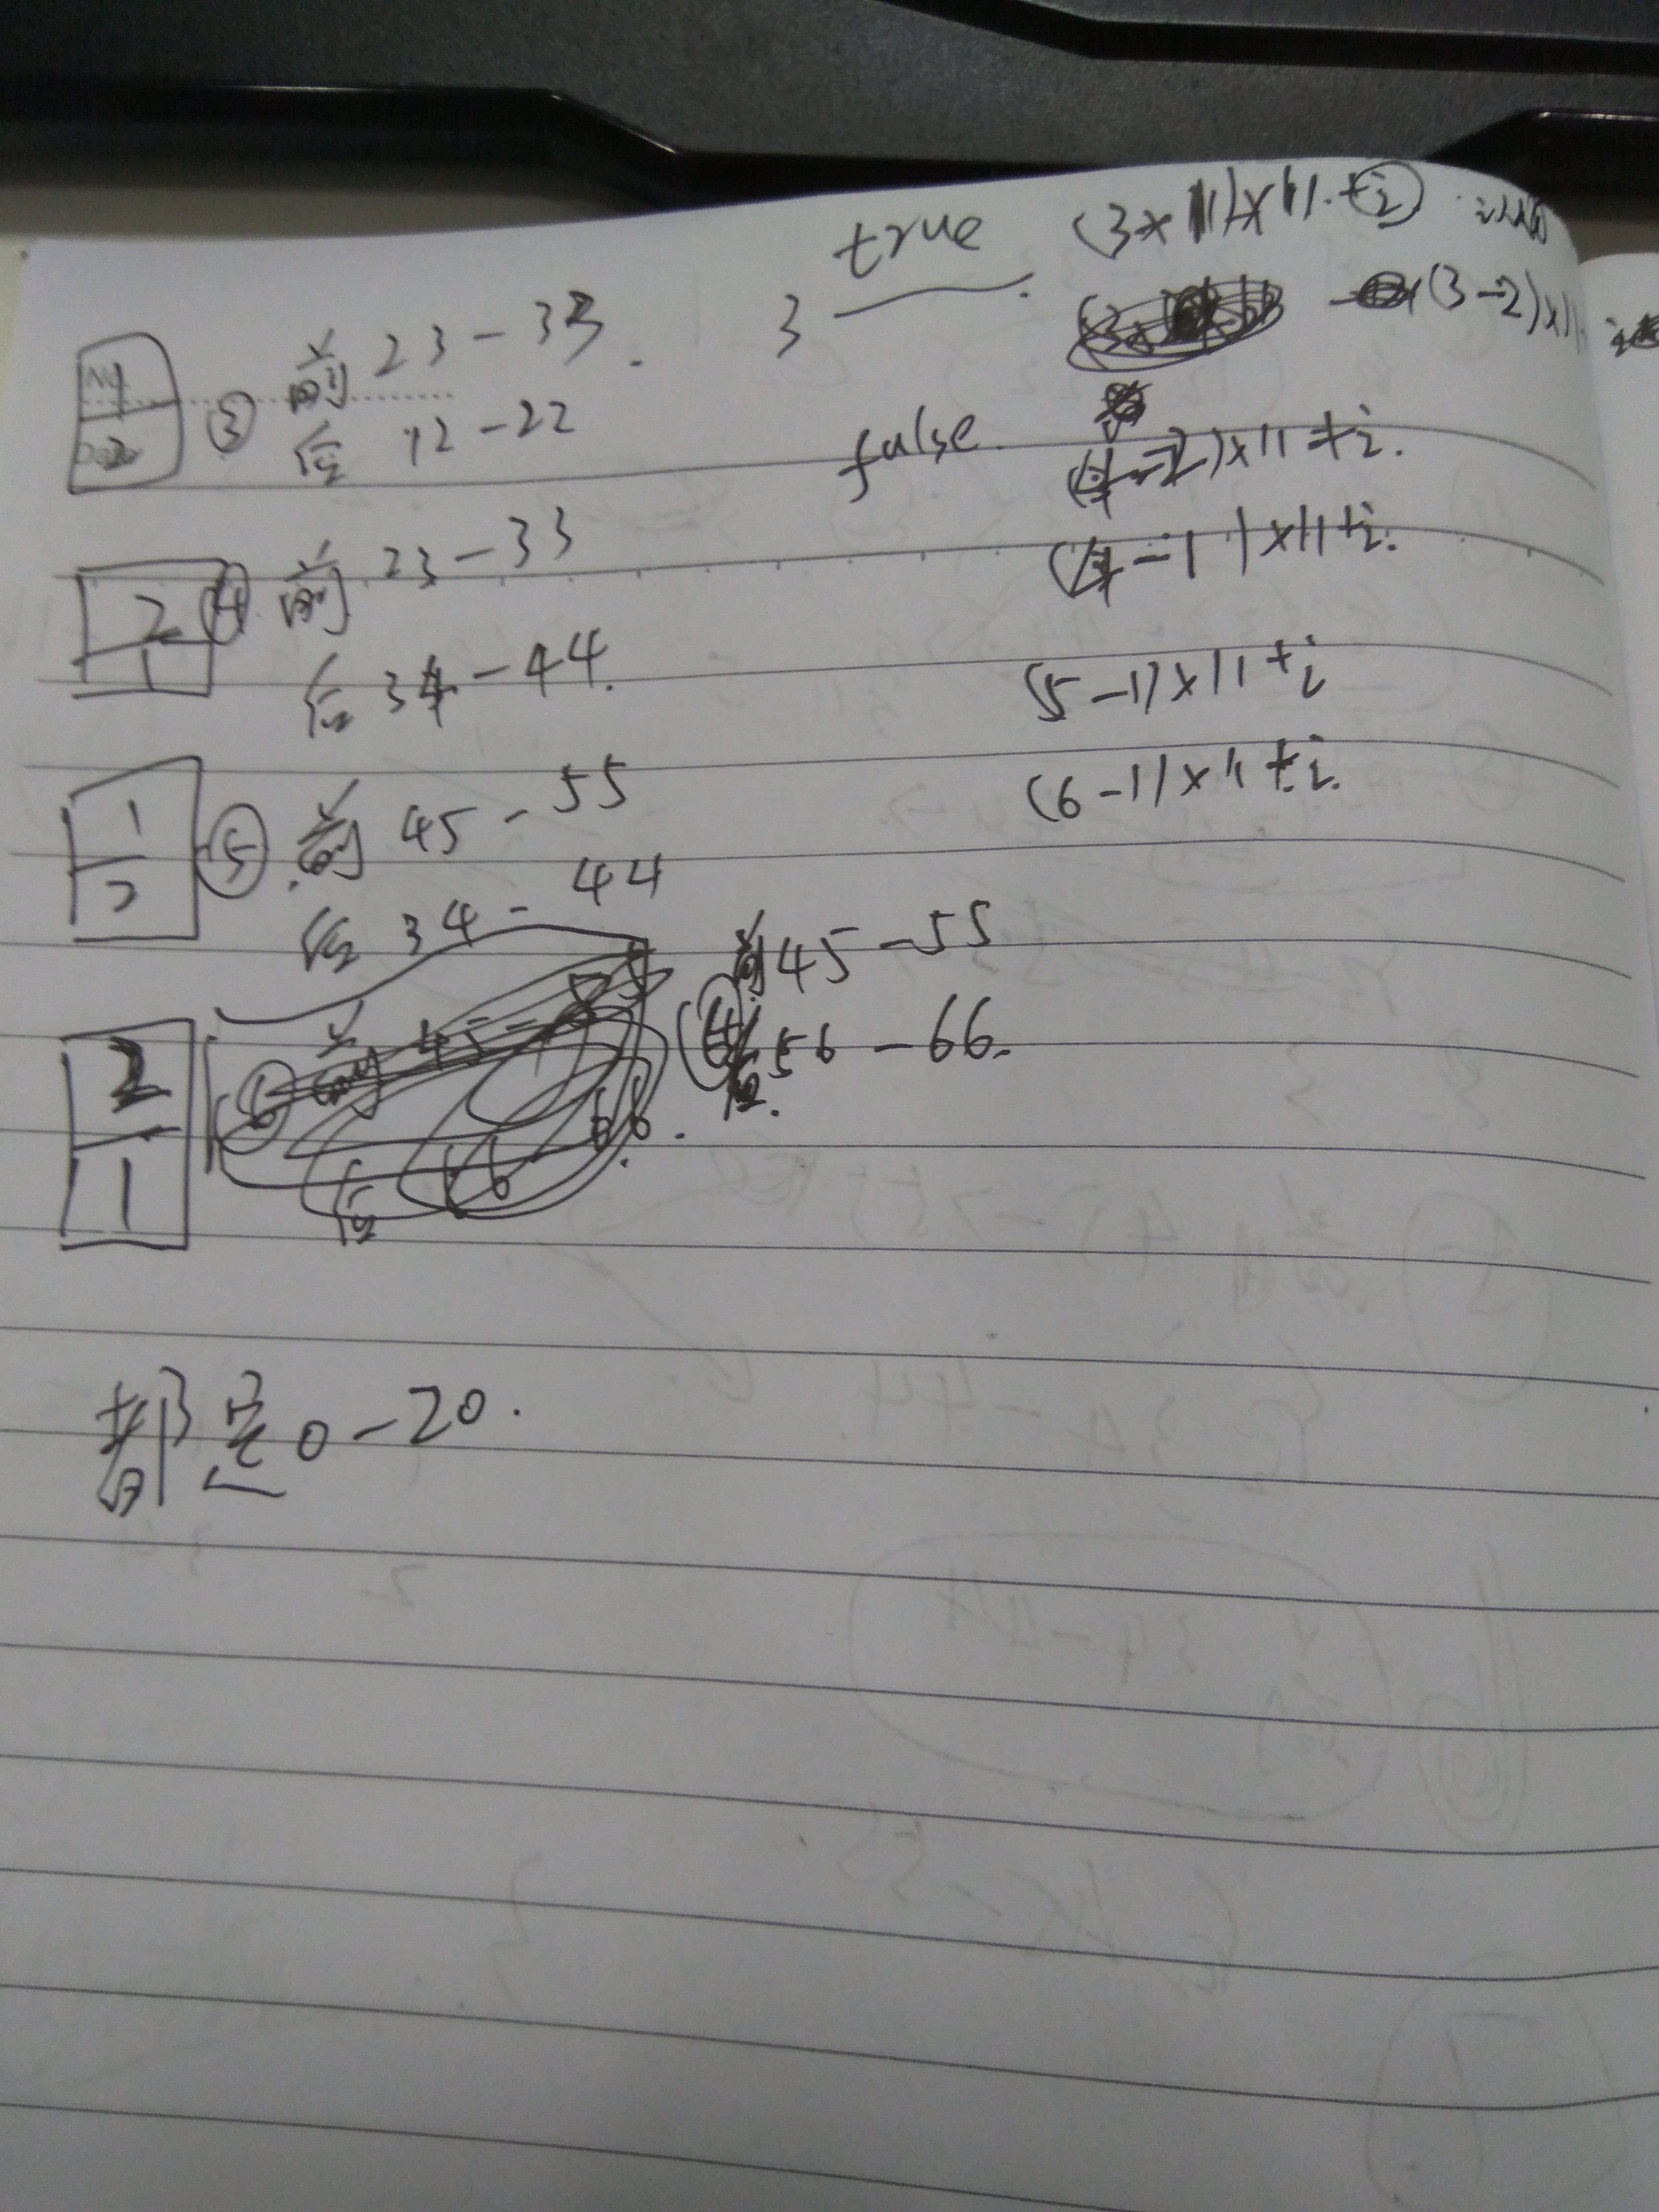 true (3×11)×11+i
1 ③ 前 23-33. 3 (3-2)×11
2 后 12-22 false (4-2)×11+i.
2 ④ 前 23-33 (4-1)×11+i.
1 后 34-44. (5-1)×11+i
1 ⑤ 前 45-55 (6-1)×11+i.
2 后 34-44
前 45-55
2 后 56-66.
1
都是0-20.